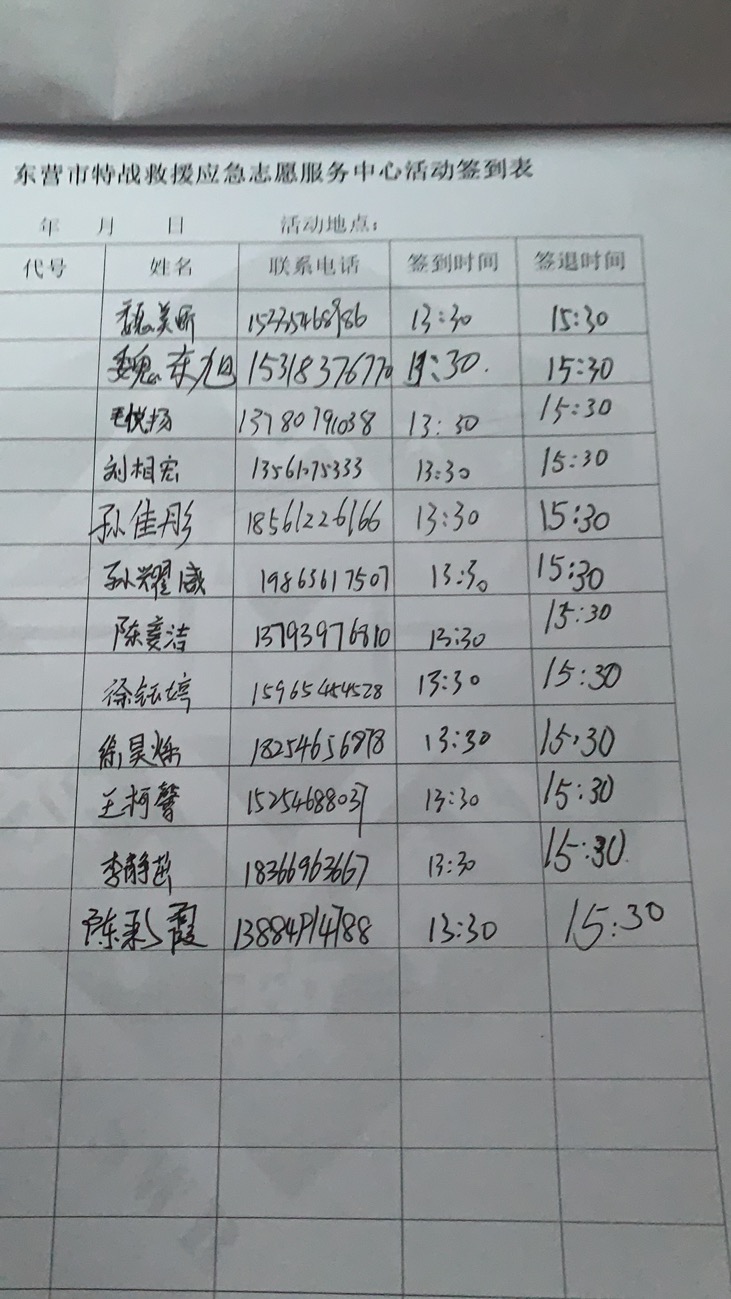 东营市特战救援应急志愿服务中心活动签到表
年 月 日 活动地点:
代号 姓名 联系电话 签到时间 签退时间
魏美昕 13:30 15:30
魏东旭 15318376770 13:30. 15:30
毛悦扬 13780791038 13:30 15:30
刘相宏 13:30 15:30
孙佳彤 18561226166 13:30 15:30
孙耀威 19863617507 13:30 15:30
陈 洁 13793976810 13:30 15:30
徐钰婷 15965454528 13:30 15:30
徐昊烁 18254656878 13:30 15:30
王柯馨 15254688037 13:30 15:30
李静茹 18366963667 13:30 15:30
陈彩霞 13884914788 13:30 15:30